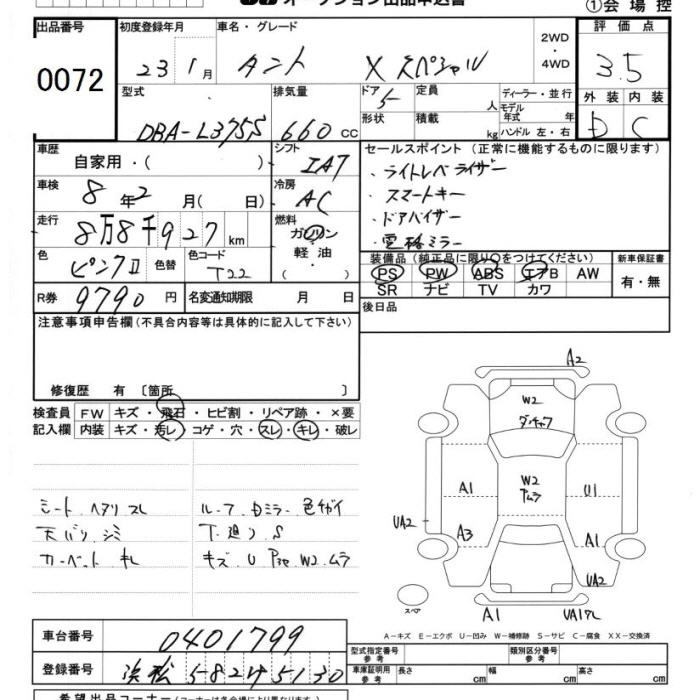 オークション出品申込書
①会場控
出品番号 初度登録年月 車名・グレード 2WD・4WD 評価点
0072 23 1月 タント X スペシャル 3.5
型式 排気量 ドア 定員 ディーラー・並行 外装 内装
DBA-L375S 660cc 5 人 モデル年式 年 D C
形状 積載 kg ハンドル 左・右
車歴 シフト セールスポイント (正常に機能するものに限ります)
自家用・( ) IAT ・ライトレベライザー
車検 冷房 ・スマートキー
8年2月(日) AC ・ドアバイザー
走行 燃料 ・電格ミラー
8万8千927km ガソリン・軽油・( )
色 色替 色コード 装備品 (純正品に限り○をつけてください) 新車保証書
ピンクⅡ T22 PS PW ABS エアB AW 有・無
SR ナビ TV カワ
R券 9790円 名変通知期限 月 日 後日品
注意事項申告欄 (不具合内容等は具体的に記入して下さい)
修復歴 有 〔箇所 〕
検査員 FW キズ・飛石・ヒビ割・リペア跡・×要
記入欄 内装 キズ・汚レ・コゲ・穴・スレ・キレ・破レ
シート ヘタリ スレ ルーフ Dミラー 色ガイ
天バリ シミ 下廻り S
カーペット キレ キズ U W2 ムラ
A2
W2
W2 ムラ
A1 U1
UA2
A3 A1
UA2
スペア A1
A-キズ E-エクボ U-凹み W-補修跡 S-サビ C-腐食 XX-交換済
車台番号 0401799 型式指定番号 参考 類別区分番号 参考
登録番号 浜松 582 45130 車庫証明用 参考 長さ cm 幅 cm 高さ cm
希望出品コーナー